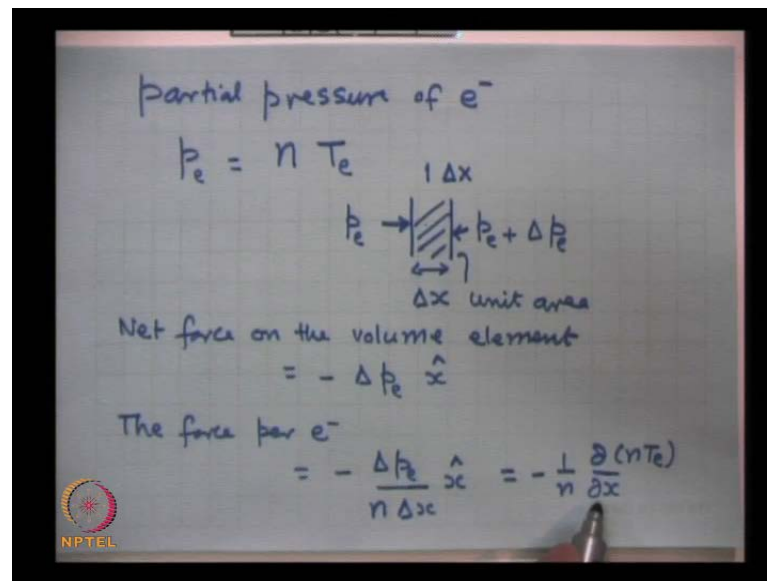 partial pressure of e⁻
pₑ = n Tₑ
1 Δx
pₑ → ← pₑ + Δpₑ
Δx unit area
Net force on the volume element
= - Δpₑ x̂
The force per e⁻
= - Δpₑ / (n Δx) x̂ = - 1/n ∂(nTₑ)/∂x
NPTEL